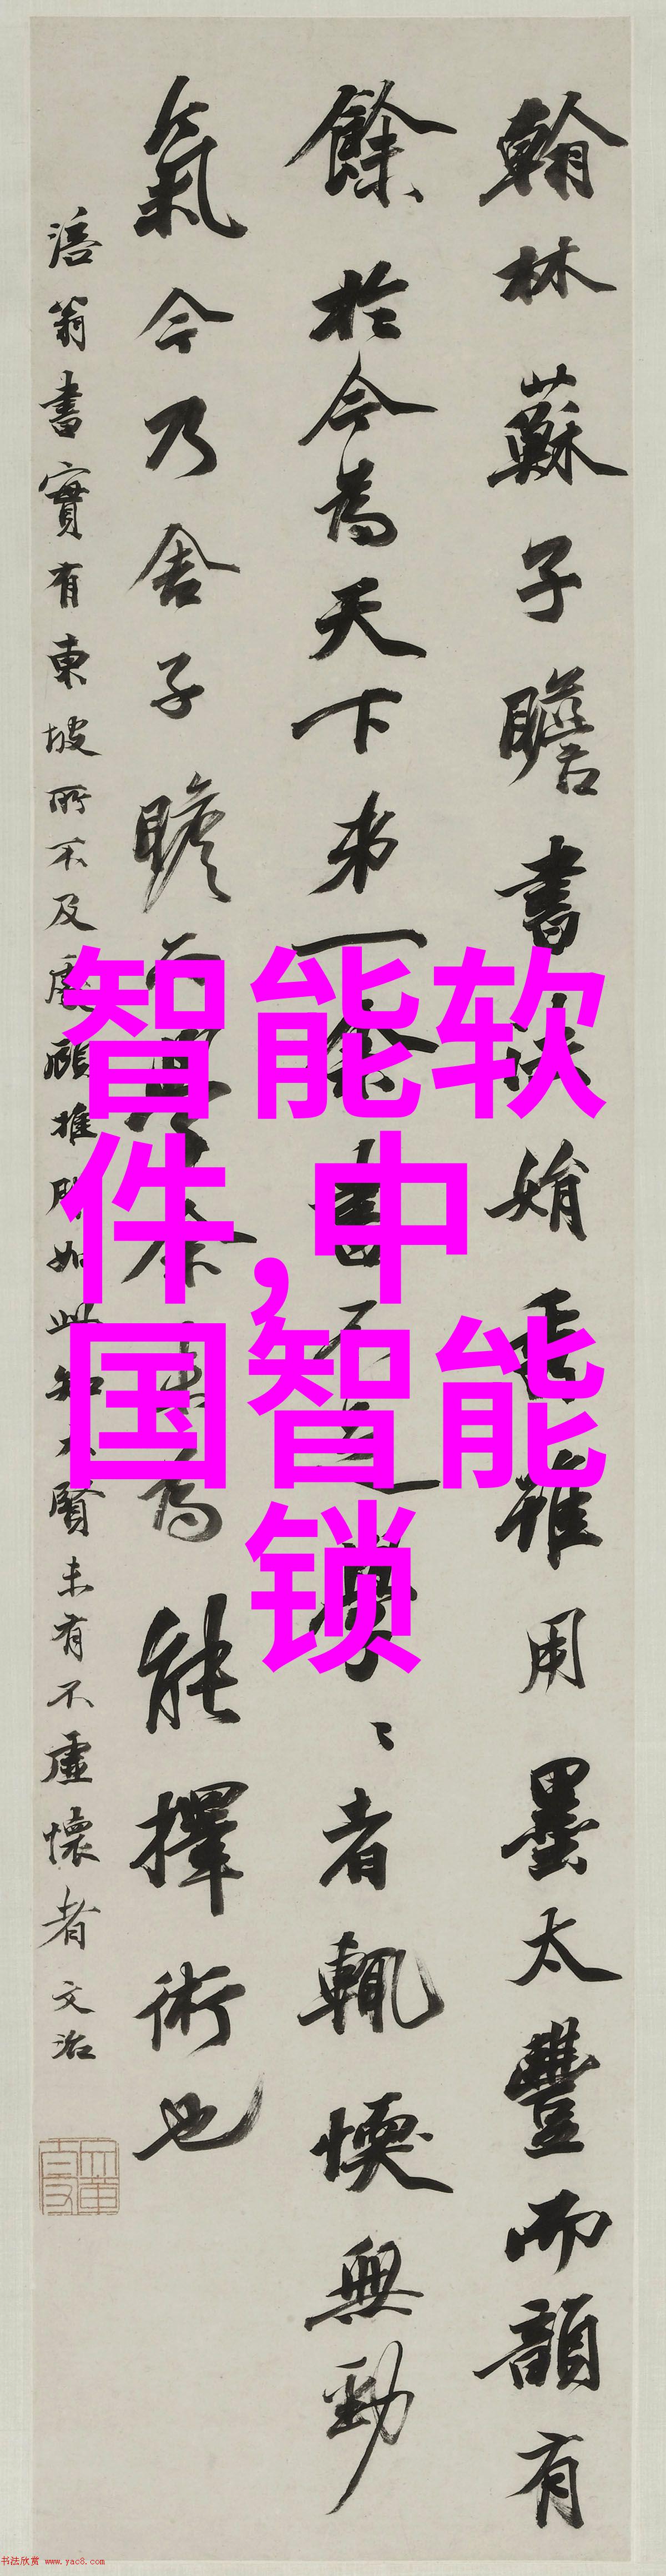 翰林蘇子瞻書法娟秀雖用墨太豐而韻有
餘於今為天下第一余書不足學〻者輒愞無勁
氣今乃舍子瞻而學余未為能擇術也
涪翁書實有東坡所不及處顧推服如此知大賢未有不虛懷者文治
智能软
件,中
国智能
锁
书法欣赏 www.yac8.com